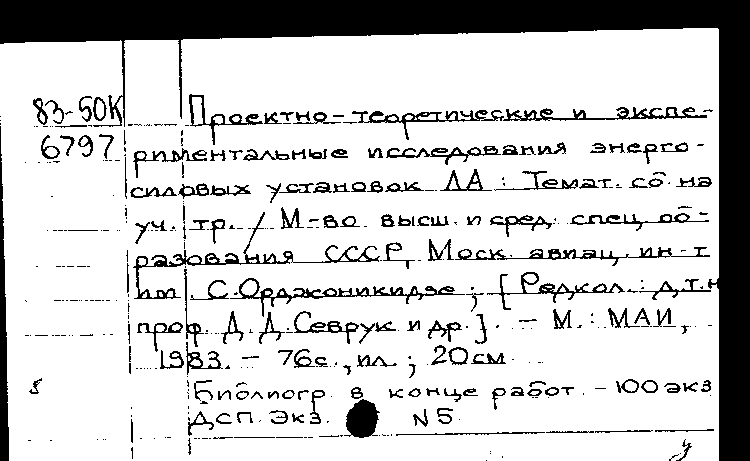 83-50К Проектно-теоретические и экспе-
6797 риментальные исследования энерго-
силовых установок ЛА : Темат. сб. на
уч. тр. / М-во высш. и сред. спец. об-
разования СССР, Моск. авиац. ин-т
им. С. Орджоникидзе ; [Редкол.: д.т.н
проф. Д. Д. Севрук и др.]. - М.: МАИ,
1983. - 76с., ил. ; 20см
Библиогр. в конце работ. - 100 экз
ДСП. Экз. N5